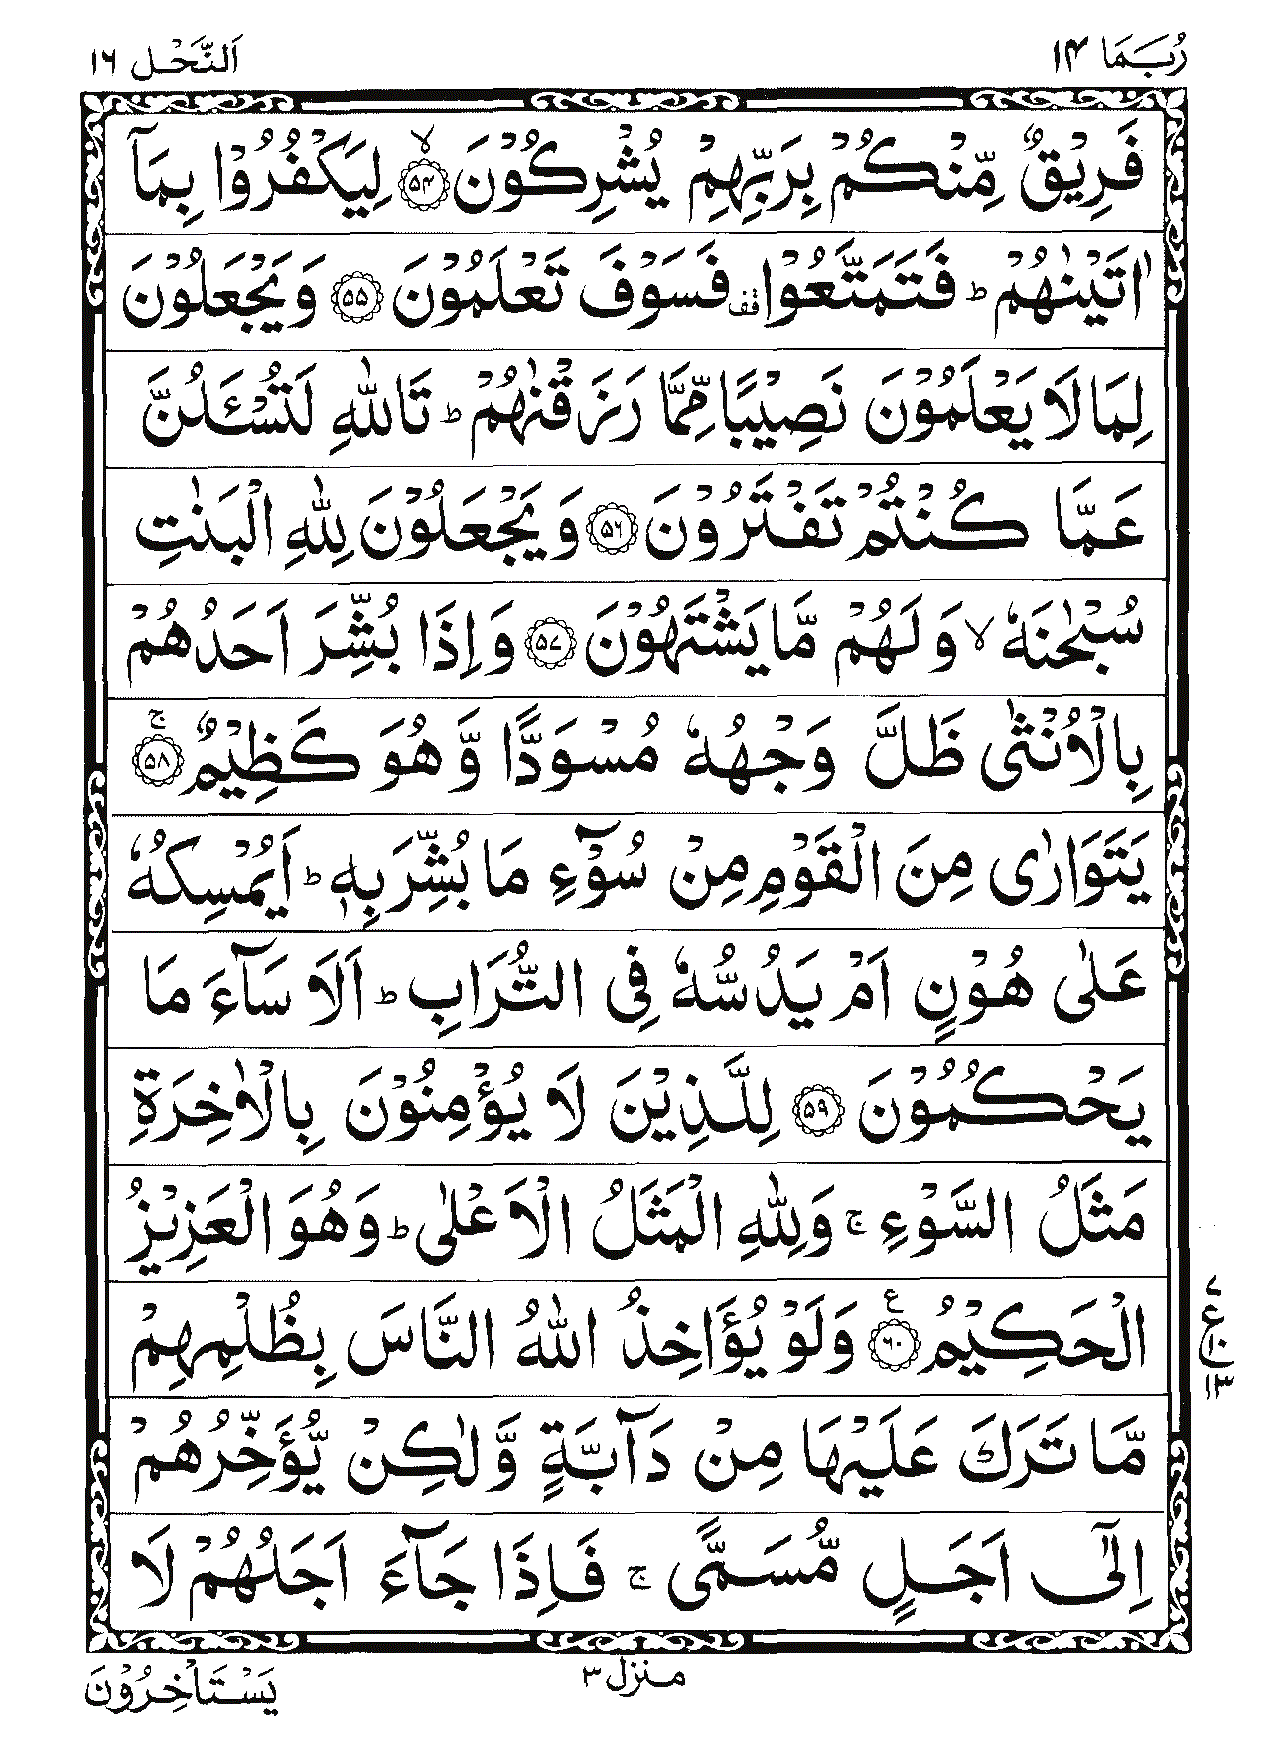 رُبَمَا ۱۴
اَلنَّحْل ۱۶
فَرِيْقٌ مِّنْكُمْ بِرَبِّهِمْ يُشْرِكُوْنَ ۙ‏﴿۵۴﴾ لِيَكْفُرُوْا بِمَاۤ
اٰتَيْنٰهُمْ ؕ فَتَمَتَّعُوْا قف فَسَوْفَ تَعْلَمُوْنَ ﴿۵۵﴾ وَيَجْعَلُوْنَ
لِمَا لَا يَعْلَمُوْنَ نَصِيْبًا مِّمَّا رَزَقْنٰهُمْ ؕ تَاللّٰهِ لَتُسْـَٔلُنَّ
عَمَّا كُنْتُمْ تَفْتَرُوْنَ ﴿۵۶﴾ وَيَجْعَلُوْنَ لِلّٰهِ الْبَنٰتِ
سُبْحٰنَهٗ ۙ وَلَهُمْ مَّا يَشْتَهُوْنَ ﴿۵۷﴾ وَاِذَا بُشِّرَ اَحَدُهُمْ
بِالْاُنْثٰى ظَلَّ وَجْهُهٗ مُسْوَدًّا وَّهُوَ كَظِيْمٌ ۚ ﴿۵۸﴾
يَتَوَارٰى مِنَ الْقَوْمِ مِنْ سُوْٓءِ مَا بُشِّرَ بِهٖ ؕ اَيُمْسِكُهٗ
عَلٰى هُوْنٍ اَمْ يَدُسُّهٗ فِى التُّرَابِ ؕ اَلَا سَآءَ مَا
يَحْكُمُوْنَ ﴿۵۹﴾ لِلَّذِيْنَ لَا يُؤْمِنُوْنَ بِالْاٰخِرَةِ
مَثَلُ السَّوْءِ ۚ وَلِلّٰهِ الْمَثَلُ الْاَعْلٰى ؕ وَهُوَ الْعَزِيْزُ
الْحَكِيْمُ ﴿۶۰﴾ ع وَلَوْ يُؤَاخِذُ اللّٰهُ النَّاسَ بِظُلْمِهِمْ
مَّا تَرَكَ عَلَيْهَا مِنْ دَآبَّةٍ وَّلٰكِنْ يُّؤَخِّرُهُمْ
اِلٰٓى اَجَلٍ مُّسَمًّى ۚ فَاِذَا جَآءَ اَجَلُهُمْ لَا
۷
ع
۱۰
۱۳
منزل ۳
يَسْتَاْخِرُوْنَ